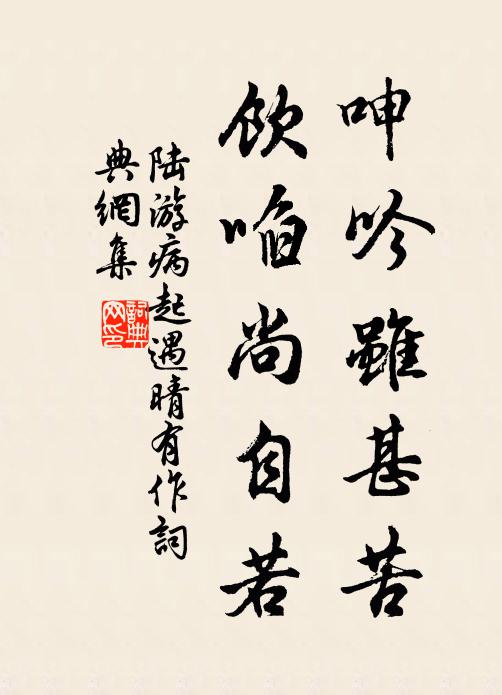 呻吟雖甚苦
飲啗尚自若
陸游病起遇晴有作詞
典網集
詞典
网印